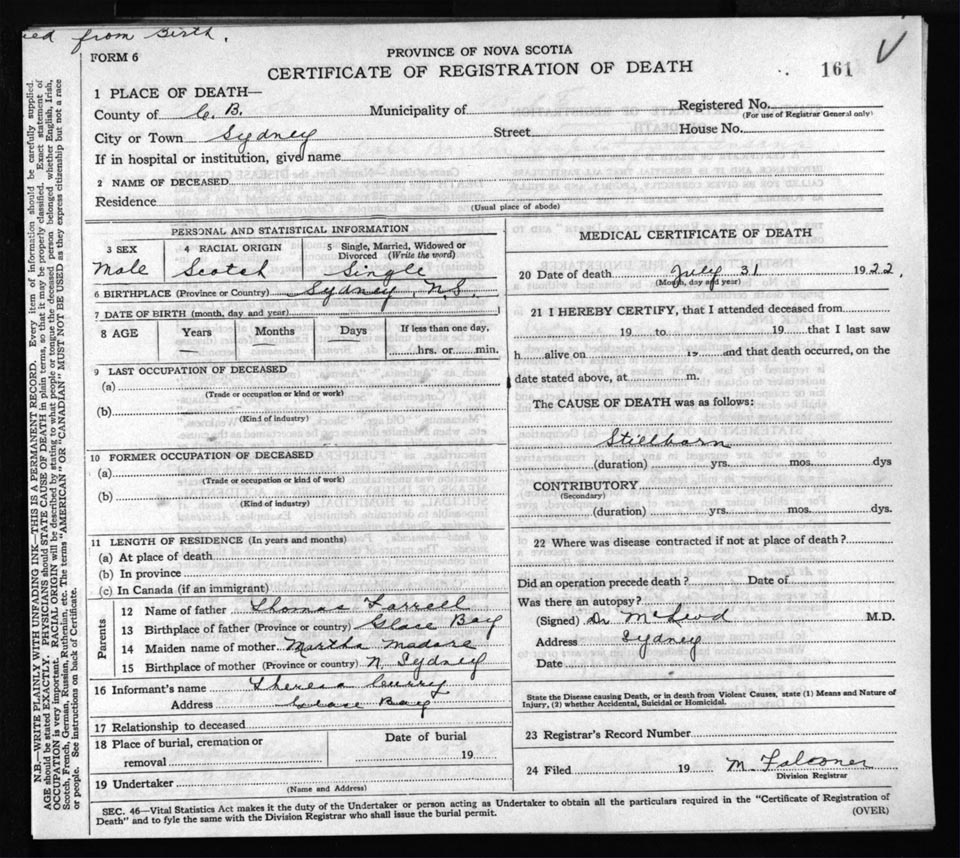 ed from Birth.
FORM 6
PROVINCE OF NOVA SCOTIA
CERTIFICATE OF REGISTRATION OF DEATH
161
1 PLACE OF DEATH—
County of C. B. Municipality of Registered No.
(For use of Registrar General only)
City or Town Sydney Street House No.
If in hospital or institution, give name
2 NAME OF DECEASED
Residence
(Usual place of abode)
PERSONAL AND STATISTICAL INFORMATION
3 SEX 4 RACIAL ORIGIN 5 Single, Married, Widowed or Divorced (Write the word)
Male Scotch Single
6 BIRTHPLACE (Province or Country) Sydney N.S.
7 DATE OF BIRTH (month, day and year)
8 AGE Years Months Days If less than one day,
hrs. or min.
9 LAST OCCUPATION OF DECEASED
(a)
(Trade or occupation or kind or work)
(b)
(Kind of industry)
10 FORMER OCCUPATION OF DECEASED
(a)
(Trade or occupation or kind of work)
(b)
(Kind of industry)
11 LENGTH OF RESIDENCE (In years and months)
(a) At place of death
(b) In province
(c) In Canada (if an immigrant)
Parents
12 Name of father Thomas Farrell
13 Birthplace of father (Province or country) Glace Bay
14 Maiden name of mother Martha Madore
15 Birthplace of mother (Province or country) N. Sydney
16 Informant's name Theresa Curry
Address Glace Bay
17 Relationship to deceased
18 Place of burial, cremation or removal Date of burial
19
19 Undertaker
(Name and Address)
MEDICAL CERTIFICATE OF DEATH
20 Date of death July 31 1922.
(Month, day and year)
21 I HEREBY CERTIFY, that I attended deceased from
19 to 19 that I last saw
h alive on 19 and that death occurred, on the
date stated above, at m.
The CAUSE OF DEATH was as follows:
Stillborn
(duration) yrs. mos. dys
CONTRIBUTORY
(Secondary)
(duration) yrs. mos. dys.
22 Where was disease contracted if not at place of death?
Did an operation precede death? Date of
Was there an autopsy?
(Signed) Dr. McLeod M.D.
Address Sydney
Date
State the Disease causing Death, or in death from Violent Causes, state (1) Means and Nature of
Injury, (2) whether Accidental, Suicidal or Homicidal.
23 Registrar's Record Number
24 Filed 19 M. Falconer
Division Registrar
SEC. 46—Vital Statistics Act makes it the duty of the Undertaker or person acting as Undertaker to obtain all the particulars required in the "Certificate of Registration of
Death" and to fyle the same with the Division Registrar who shall issue the burial permit.
(OVER)
N.B.—WRITE PLAINLY WITH UNFADING INK—THIS IS A PERMANENT RECORD. Every item of information should be carefully supplied.
AGE should be stated EXACTLY. PHYSICIANS should STATE CAUSE OF DEATH in plain terms, so that it may be properly classified. Exact statement of
OCCUPATION is very important. RACIAL ORIGIN will be described by stating to what people or tongue the deceased person belonged whether English, Irish,
Scotch, French, German, Russian, Ruthenian, etc. The terms "AMERICAN" OR "CANADIAN" MUST NOT BE USED as they express citizenship but not a race
or people. See instructions on back of Certificate.